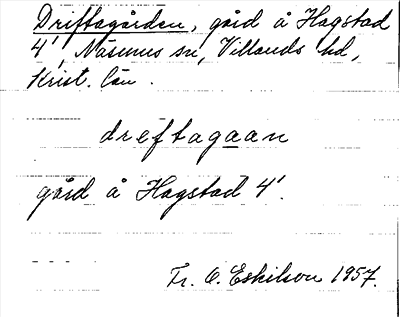 Driftagården, gård å Hagstad
4¹, Näsums sn, Villands hd,
Krist. län.
dreftagaan
gård å Hagstad 4¹.
Fr. O. Eskilson 1957.